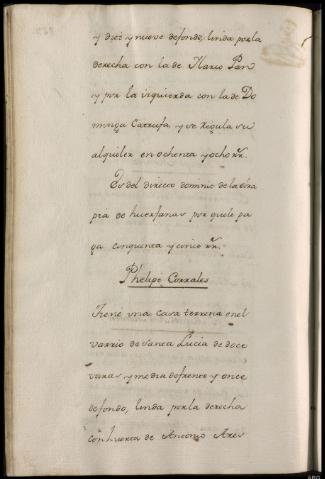 y diez y nueve defondo, linda porla
derecha con lade Marco Pan
y por la izquierda con lade Do
minga Carrufa y se Regula su
alquiler en ochenta yocho rr.
Es del directo dominio de la obra
pia de huerfanas por quele pa
ga cinquenta y cinco rr.
Phelipe Corrales
tiene una casa terrena enel
varrio de Santa Lucia de doce
varas y media defrente y once
defondo, linda porla derecha
con huerta de Antonio